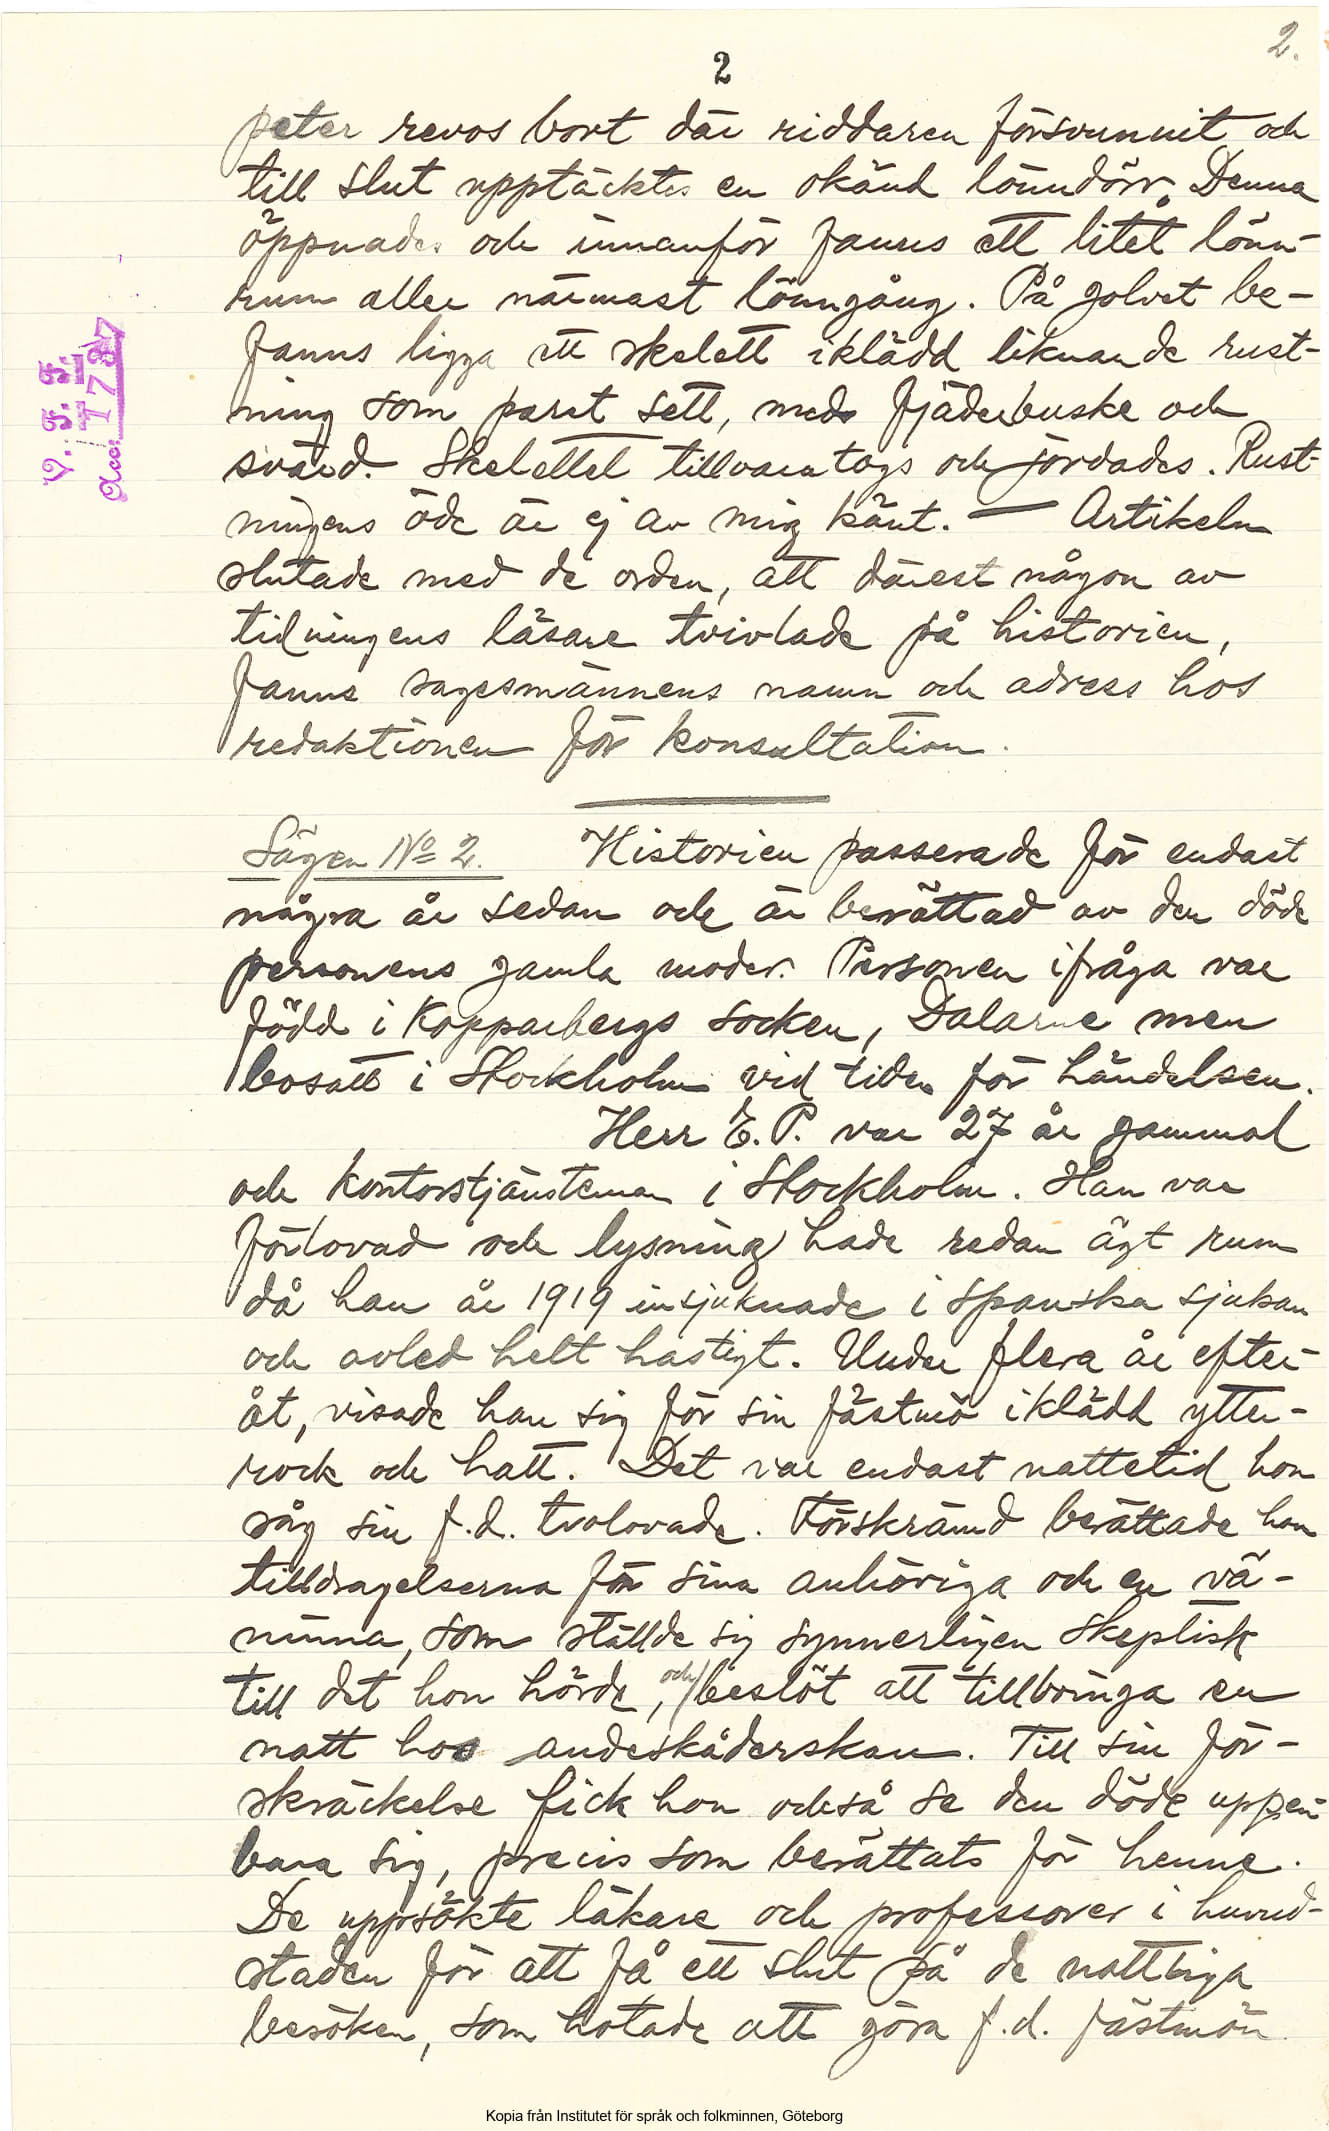 2.
2
peter revos bort där riddaren försvunnit och
till slut upptäcktes en okänd lönndörr. Denna
öppnades och innanför fanns ett litet lönn-
rum eller närmast lönngång. På golvet be-
fanns ligga ett skelett iklädd liknande rust-
ning som paret sett, med fjäderbuske och
svärd. Skelettet tillvaratogs och jordades. Rust-
ningens öde är ej av mig känt. — Artikeln
slutade med de orden, att därest någon av
tidningens läsare tvivlade på historien,
fanns sagesmännens namn och adress hos
redaktionen för konsultation.
Sägen No 2. Historien passerade för endast
några år sedan och är berättad av den döde
personens gamla moder. Personen ifråga var
född i Kopparbergs socken, Dalarne men
bosatt i Stockholm vid tiden för händelsen.
Herr E. P. var 27 år gammal
och kontorstjänsteman i Stockholm. Han var
förlovad och lysning hade redan ägt rum
då han år 1919 insjuknade i spanska sjukan
och avled helt hastigt. Under flera år efter-
åt, visade han sig för sin fästmö iklädd ytter-
rock och hatt. Det var endast nattetid hon
såg sin f.d. trolovade. Förskrämd berättade hon
tilldragelserna för sina anhöriga och en vä-
ninna, som ställde sig synnerligen skeptisk
till det hon hörde, och beslöt att tillbringa en
natt hos andeskåderskan. Till sin för-
skräckelse fick hon också se den döde uppen-
bara sig, precis som berättats för henne.
De uppsökte läkare och professorer i huvud-
staden för att få ett slut på de nattliga
besöken, som hotade att göra f.d. fästmön
V. F. F.
Acc: 1787
Kopia från Institutet för språk och folkminnen, Göteborg